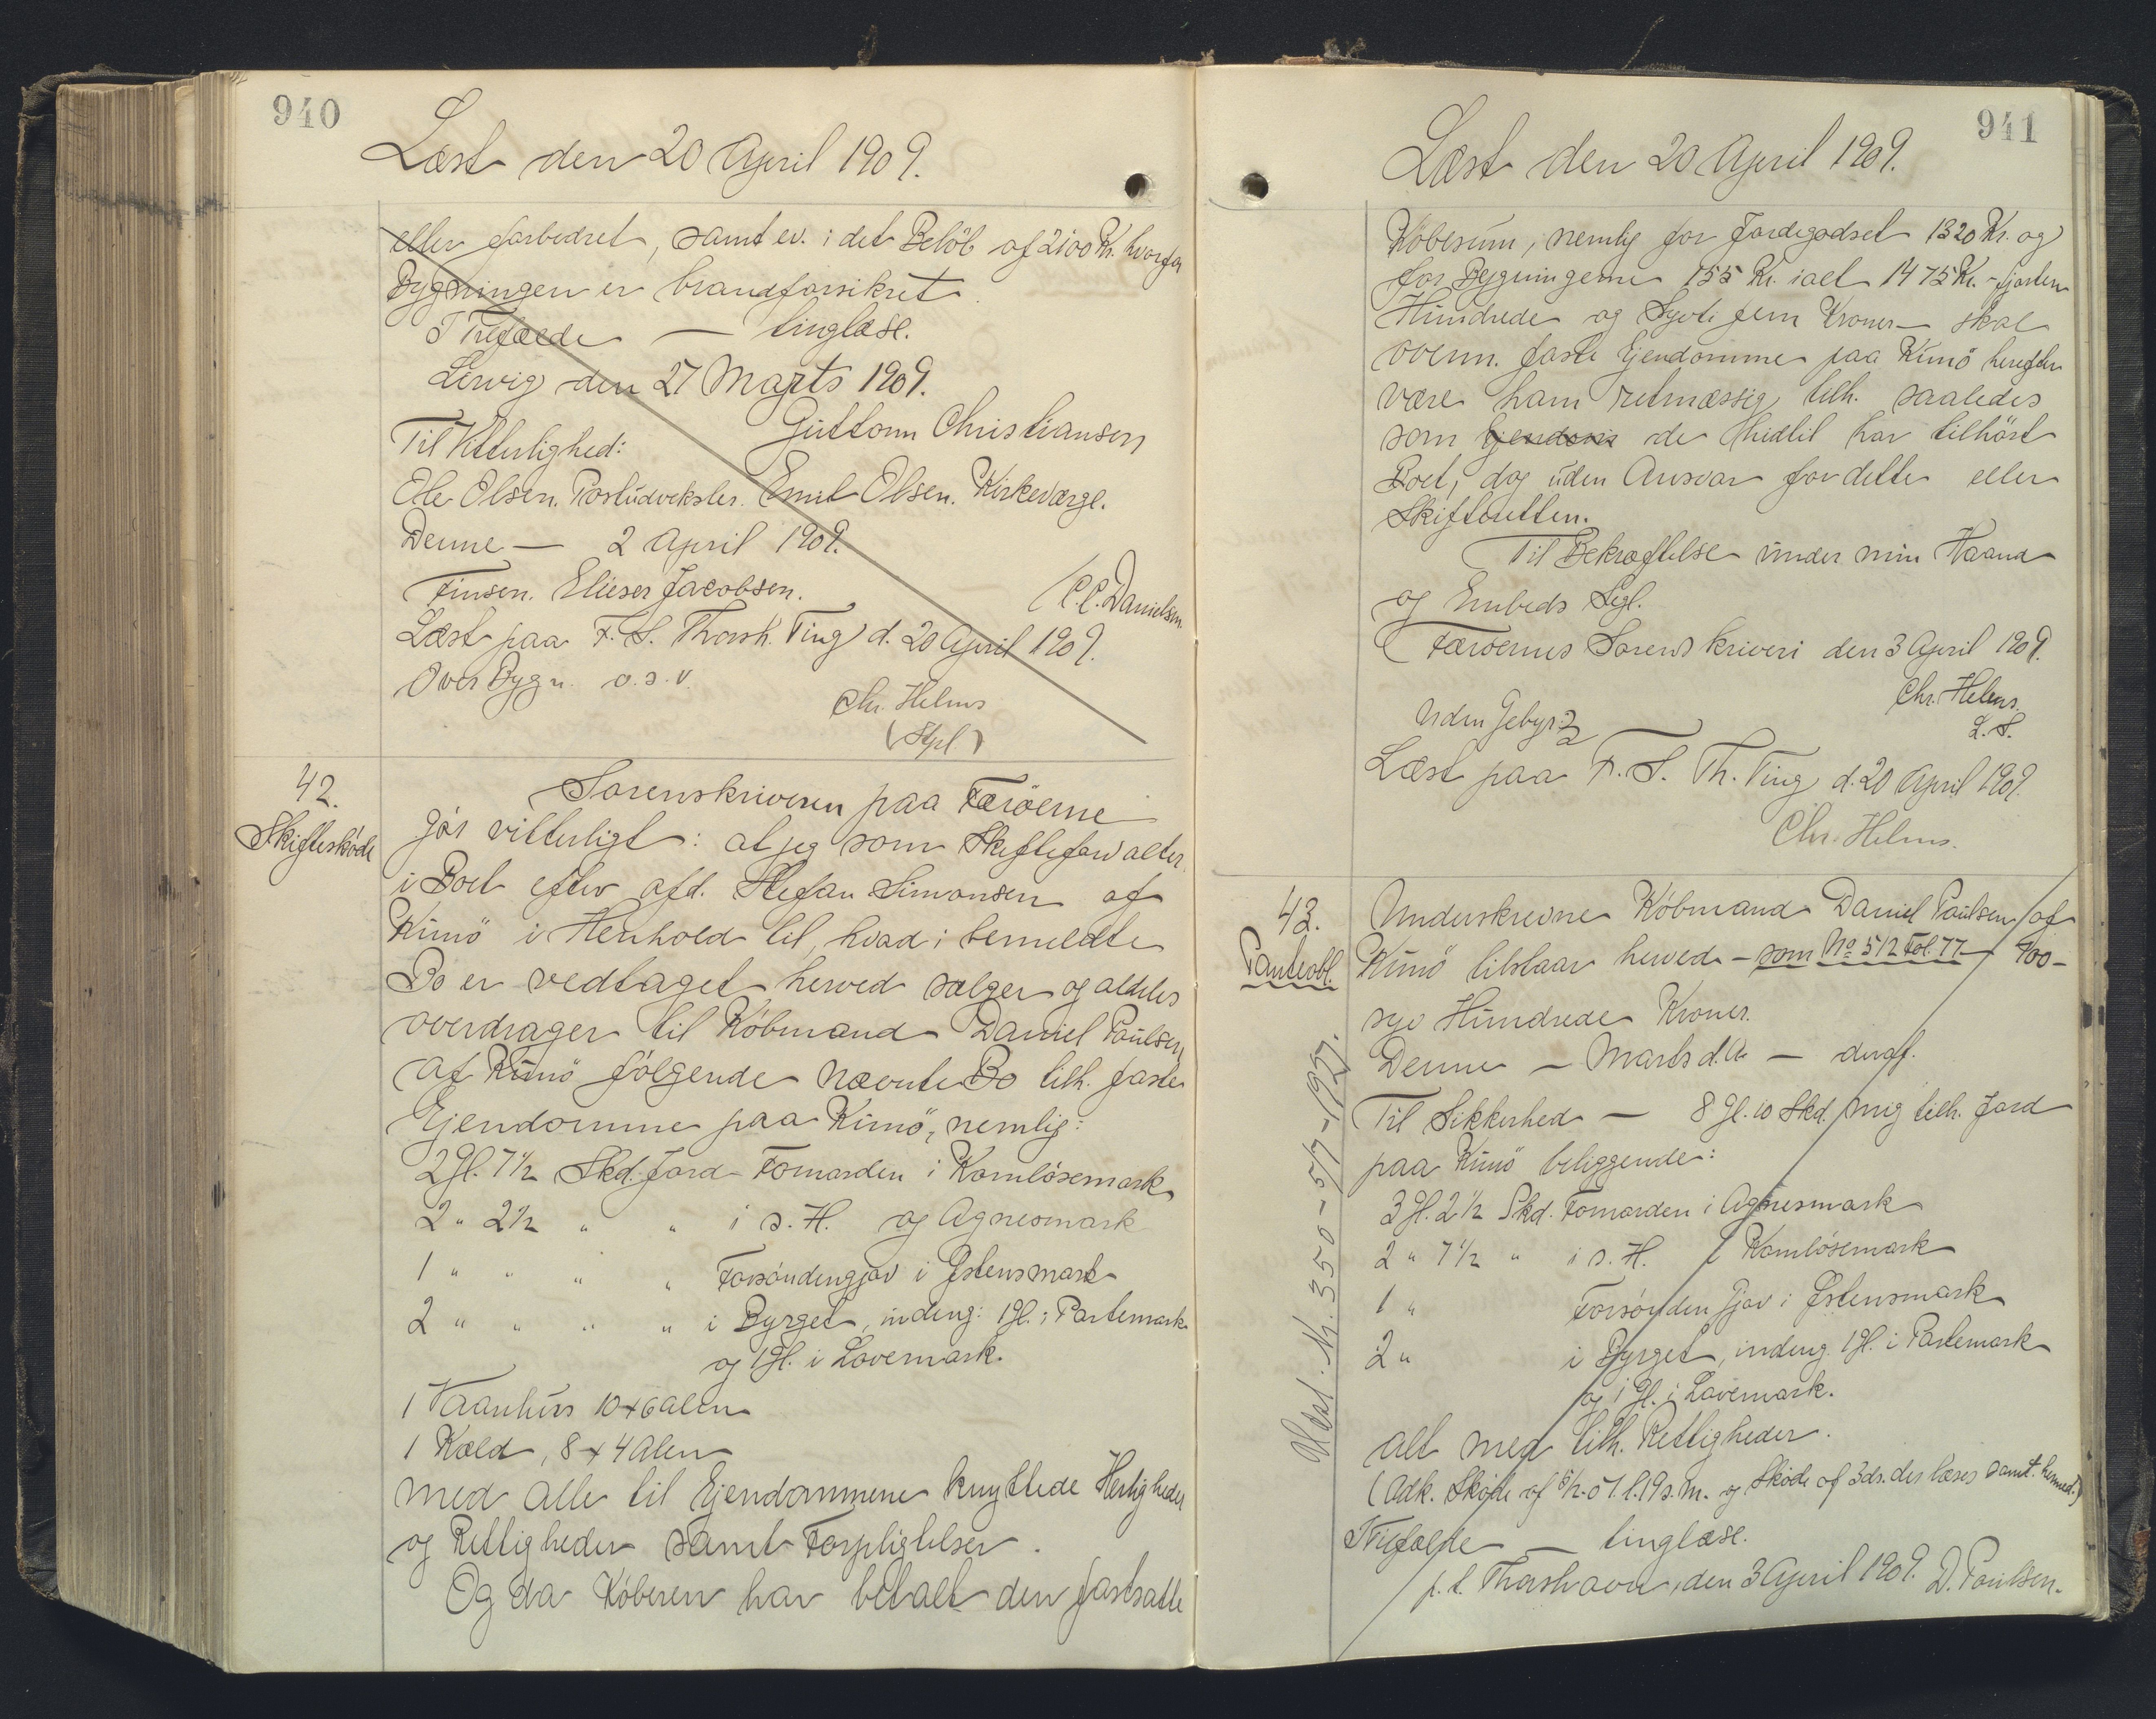 940
Læst den 20 April 1909.
eller forbedret, samt ev. i det Beløb af 2100 Kr. hvorfor
Bygningen er brandforsikret.
I Trefælde — tinglæse.
Lervig den 27 Marts 1909.
Guttorm Christiansen
Til Vitterlighed:
Ole Olsen. Postudveksler. Emil Olsen. Kirkeværge.
Denne — 2 April 1909.
Finsen. Elieser Jacobsen.
C.C. Danielsen
Læst paa F. S. Thorsh. Ting d. 20 April 1909.
Over Bygn. o.s.v.
Chr. Helms
(Stpl)
42.
Skifteskøde
Sorenskriveren paa Færöerne
gør vitterligt: at jeg som Skifteforvalter
i Boet efter afd. Stefan Simonsen af
Kunö i Henhold til, hvad i bemeldte
Bo er vedtaget herved sælger og aldeles
overdrager til Købmand Daniel Poulsen
af Kunö følgende nævnte Bo tilh. faste
Ejendomme paa Kunö, nemlig:
2 Gl. 7 1/2 Skd. Jord Fornorden i Kornløsemark
2 " 2 1/2 " " i s. H. og Agnesmark
1 " " " " Forsöndengjov i Østensmark
2 " " " " i Byrget, indeng: 1 Gl. i Partemark
og 1 Gl. i Lovemark.
1 Vaanhus 10 x 6 Alen
1 Kæld, 8 x 4 Alen
med alle til Ejendommene knyttede Herligheder
og Rettigheder samt Forpligtelser.
Og da Køberen har betalt den fastsatte
941
Læst den 20 April 1909.
Købesum, nemlig for Jordegodset 1320 Kr. og
for Bygningerne 155 Kr. ialt 1475 Kr. - fjorten
Hundrede og Syvti fem Kroner - skal
ovenn. faste Ejendomme paa Kunö herefter
være ham retmæssig tilh. saaledes
som Ejendom de hidtil har tilhørt
Boet, dog uden Ansvar for dette eller
Skifteretten.
Til Bekræftelse under min Haand
og Embeds Segl.
Færöernes Sorenskriveri den 3 April 1909.
Chr. Helms.
L. S.
Uden Gebyr.
Læst paa F. S. Th. Ting d. 20 April 1909.
Chr. Helms.
43.
Panteobl.
Underskrevne Købmand Daniel Poulsen af
Kunö tilstaar herved - som No 512 Fol. 77 - 700 -
syv Hundrede Kroner.
Denne - Marts d. A. -
Til Sikkerhed — 8 Gl. 10 Skd. mig tilh. Jord
paa Kunö beliggende:
3 Gl. 2 1/2 Skd. Fornorden i Agnesmark
2 " 7 1/2 " i s. H. i Kornløsemark
1 " Forsönden Gjov i Østensmark
2 " i Byrget, indeng. 1 Gl. i Partemark
og 1 Gl. i Lovemark.
alt med tilh. Rettigheder.
(Adk. Skøde af og Skøde af 3 ds. der læses samt. hermed.)
Trefolde — tinglæse.
p. t. Thorshavn, den 3 April 1909. D. Poulsen.
Aflæst. Nr. 350 - 5/7 - 1957.